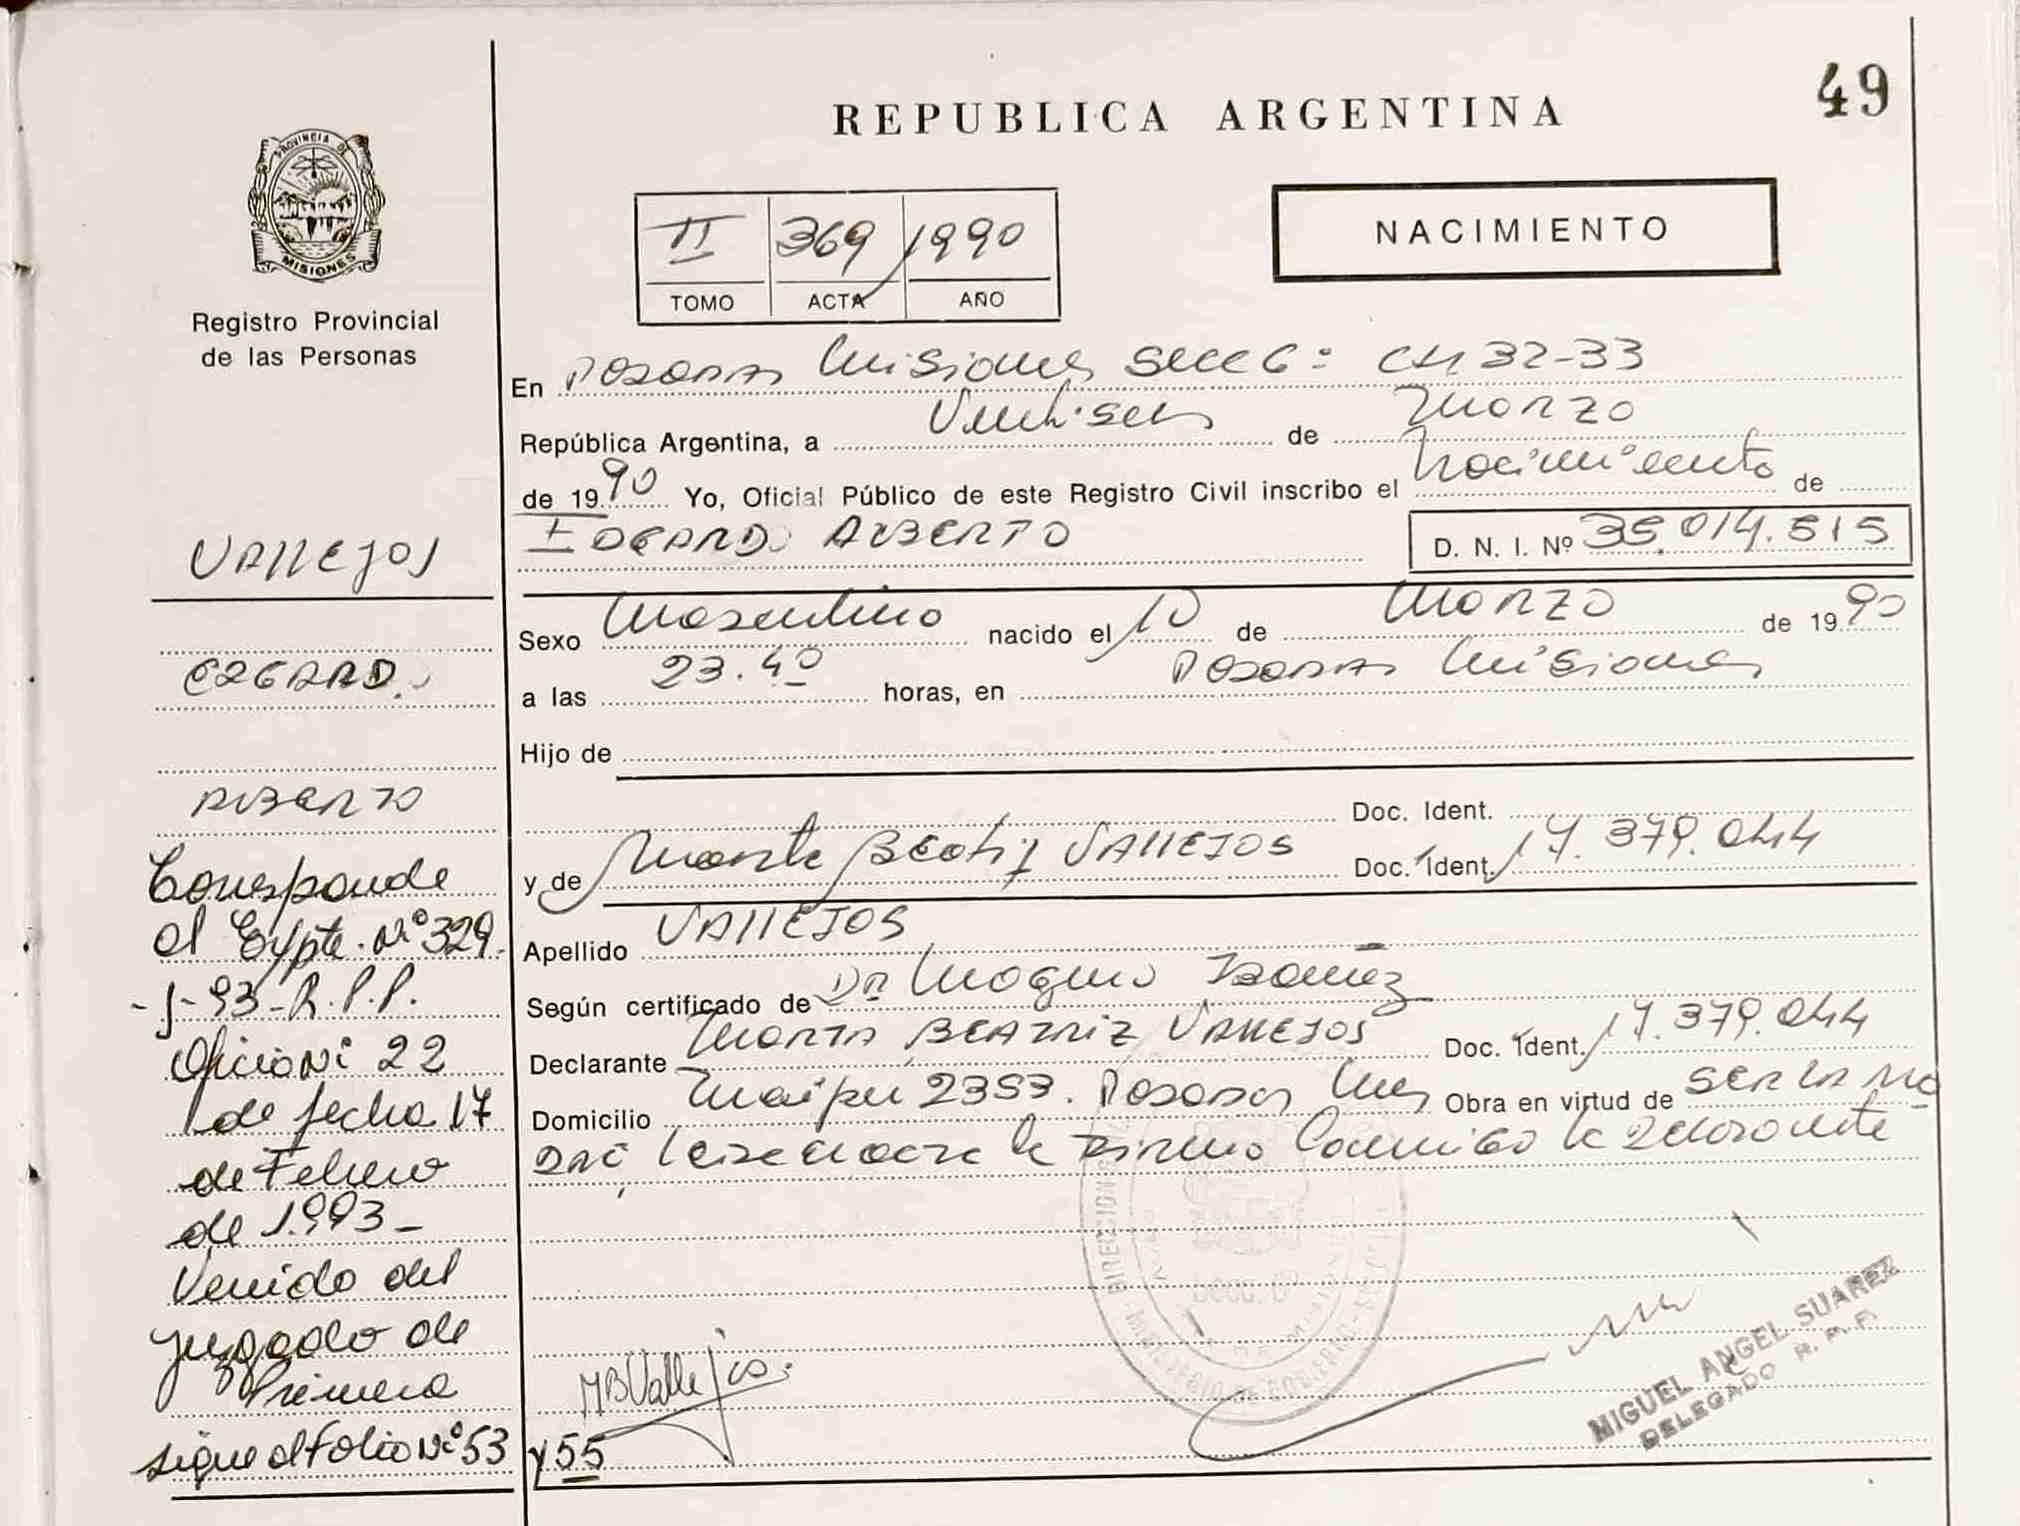 49
REPUBLICA ARGENTINA
PROVINCIA DE
MISIONES
Registro Provincial
de las Personas
II 369 1990
TOMO ACTA AÑO
NACIMIENTO
En Posadas Misiones Secc 6:
32-33
República Argentina, a Veintiseis de Marzo
de 1990 Yo, Oficial Público de este Registro Civil inscribo el Nacimiento de
EDGARDO ALBERTO
D. N. I. Nº 35.014.515
Sexo Masculino nacido el 10 de Marzo de 1990
a las 23.40 horas, en Posadas Misiones
Hijo de
Doc. Ident.
y de Marta Beatriz VALLEJOS Doc. Ident. 17.379.044
Apellido VALLEJOS
Según certificado de Dr
Declarante Marta BEATRIZ VALLEJOS Doc. Ident. 17.379.044
Domicilio Maipu 2353. Posadas Mnes Obra en virtud de SER LA MA
DRE Leida el acta la firma Conmigo la declarante
MBVallejos
MIGUEL ANGEL SUAREZ
DELEGADO R. P. P.
VALLEJOS
EDGARDO
ALBERTO
Corresponde
al Expte. Nº 329.
-J-93-R.P.P.
Oficio Nº 22
de fecha 17
de Febrero
de 1.993-
Venido del
Juzgado de
Primera
sigue al folio Nº 53 y 55